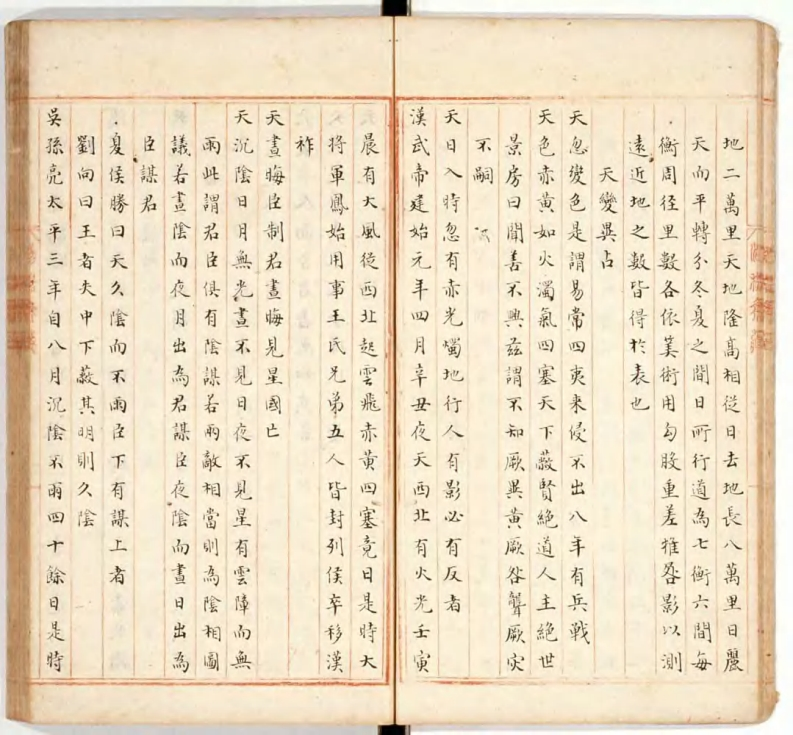 地二萬里天地隆高相從日去地長八萬里日麗
天而平轉分冬夏之間日所行道為七衡六間每
衡周徑里數各依筭術用勾股重差推晷影以測
遠近地之數皆得於表也
天變異占
天忽變色是謂易常四夷来侵不出八年有兵戦
天色赤黄如火濁氣四塞天下蔽賢絶道人主絶世
景房曰聞善不興兹謂不知厥異黄厥咎聾厥灾
不嗣
天日入時忽有赤光燭地行人有影必有反者
漢武帝建始元年四月辛丑夜天西北有火光壬寅
晨有大風從西北起雲飛赤黄四塞竟日是時大
将軍鳳始用事王氏兄弟五人皆封列侯卒移漢
祚
天晝晦臣制君晝晦見星國亡
天沉陰日月無光晝不見日夜不見星有雲障而無
雨此謂君臣俱有陰謀若兩敵相當則為陰相圖
議若晝陰而夜月出為君謀臣夜陰而晝日出為
臣謀君
夏侯勝曰天久陰而不雨臣下有謀上者
劉向曰王者失中下蔽其明則久陰
吳孫亮太平三年自八月沉陰不雨四十餘日是時